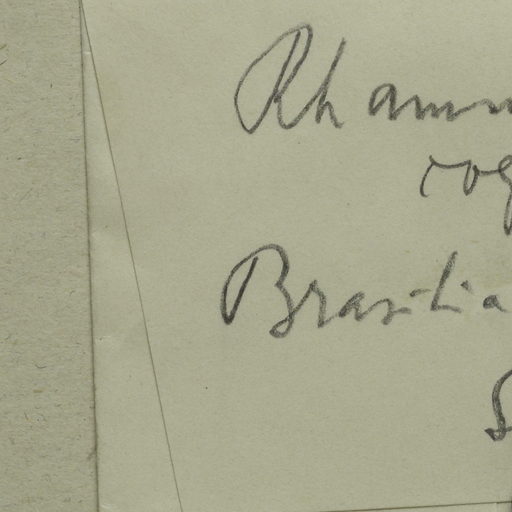 Rhamn
rog
Brasilia
S